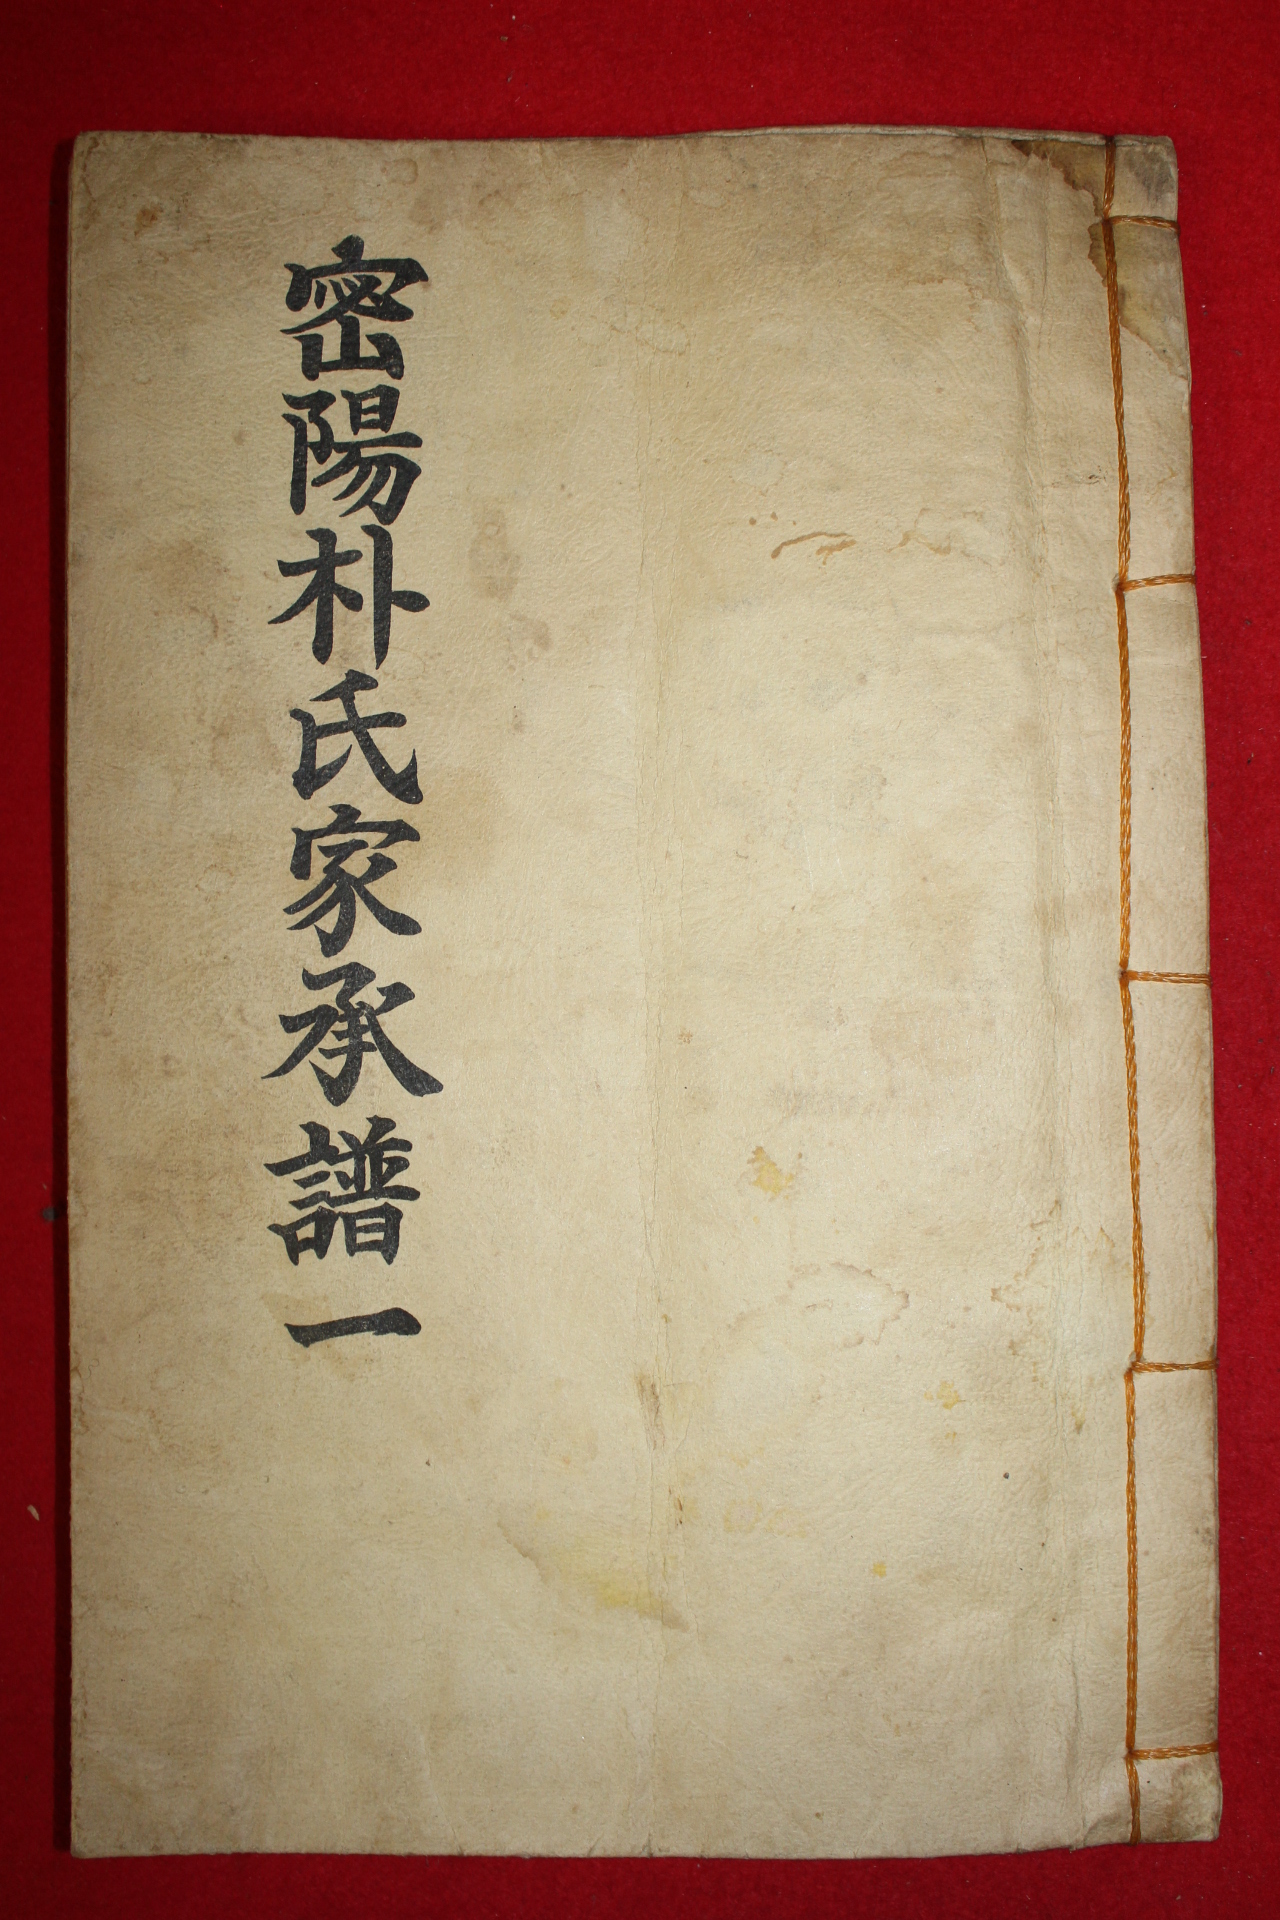 密陽朴氏家承譜 一